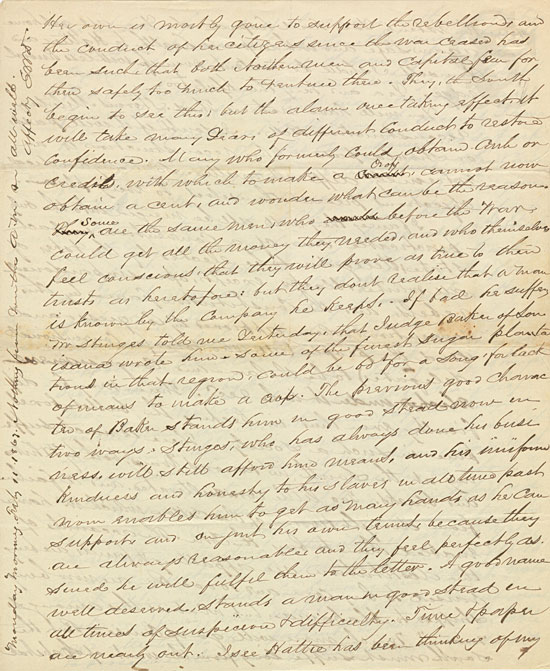 Her own is mostly gone to support the rebellion, and
the conduct of her citizens since the war ceased has
been such, that both Northern men and Capital fear for
their safety too much to venture there. They, the South
begin to see this, but the alarm once taking effect, it
will take many Years of different conduct to restore
confidence. Many who formerly Could, obtain Cash or
Credits, with which to make a Crop, cannot now
obtain a cent, and wonder what can be the reason.
Some, are the same men, who before the War,
could get all the money they needed, and who themselves
feel conscious, that they will prove as true to their
trusts as heretofore: but they dont realise that a man
is known by the Company he Keeps. If bad he suffers
Mr Sturges told me Yesterday, that Judge Baker of Lou
isiana wrote him, some of the finest sugar planta
tions in that region, could be bot for a Song, for lack
of means to make a Crop. The previous good Charac
ter of Baker stands him in good Stead now in
two ways. Sturges, who has always done his busi
ness, will still afford him means, and his uniform
Kindness and honesty to his slaves in all time past
now enables him to get as many hands as he Can
support, and on just his own terms, because they
are always reasonable, and they feel perfectly as
sured he will fulfil them to the letter. A good name
well deserved, stands a man in good Stead in
all times of suspicion & difficulty. Time & paper
are nearly out. I see Hattie has been thinking of my
Monday Morning, Feby 11 1867, Nothing from
all well
Affecty